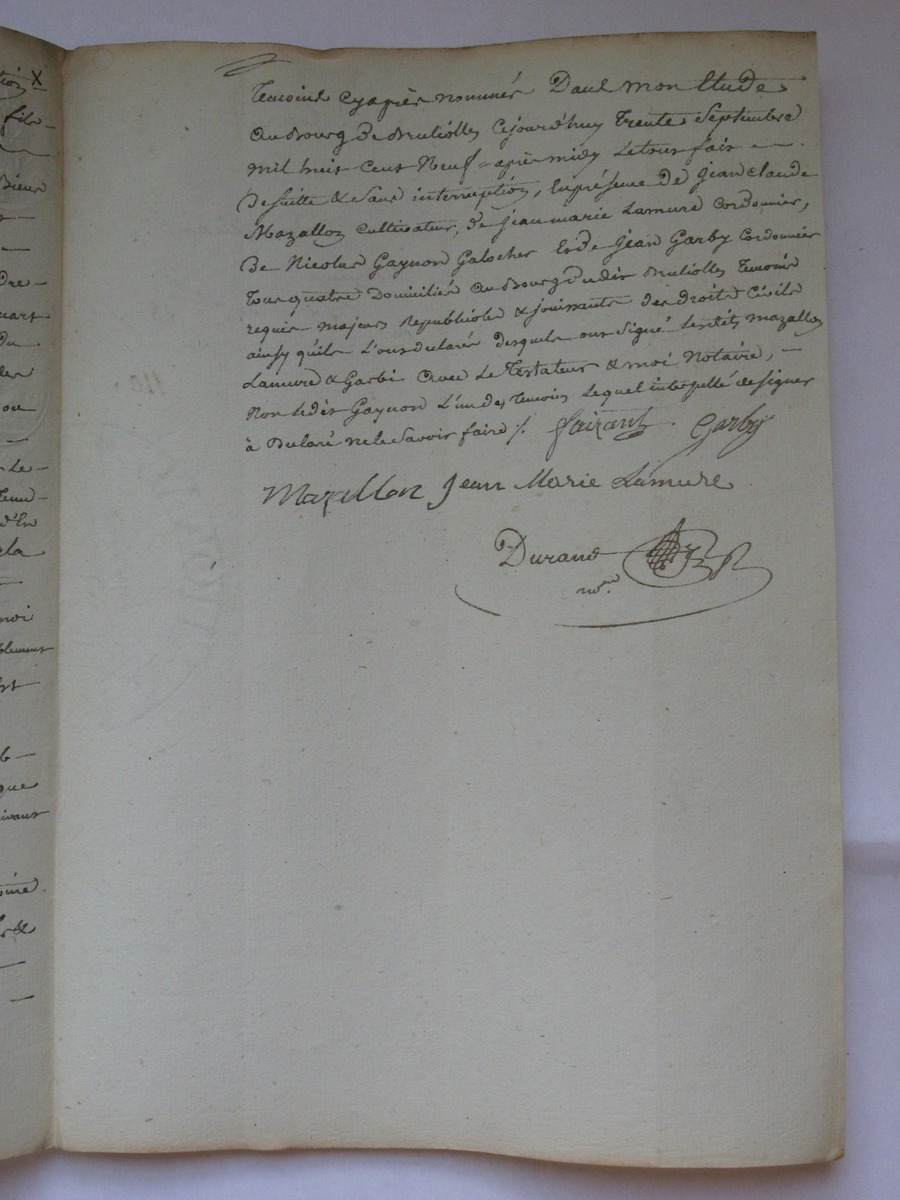 temoins cyaprès nommés Dans mon Etude
au Bourg De Brulioles cejourd'huy trente Septembre
mil huit cent Neuf = après midy Le tout fait
De suitte & sans interruption, en présence De jean claude
Mazallon cultivateur, de jean marie Lamure Cordonnier,
De Nicolas Gaynon Galocher et De jean Garby Cordonnier
tous quatre Domiciliés au Bourg dudit Brulioles temoins
requis majeurs & jouissants des droits Civils
ainsy qu'ils L'ont declaré desquels ont signé Lesdits mazallon
Lamure & Garbi avec Le Testateur & moi Notaire,
Non Ledit Gaynon L'un des temoins Lequel interpellé de signer
à Declaré ne le savoir faire ./.
Garby
Mazallon Jean Marie Lamure
Durand
n.re
X
file
Bieux
Dre
Du
der
ou
Le
d'En
la
moi
que